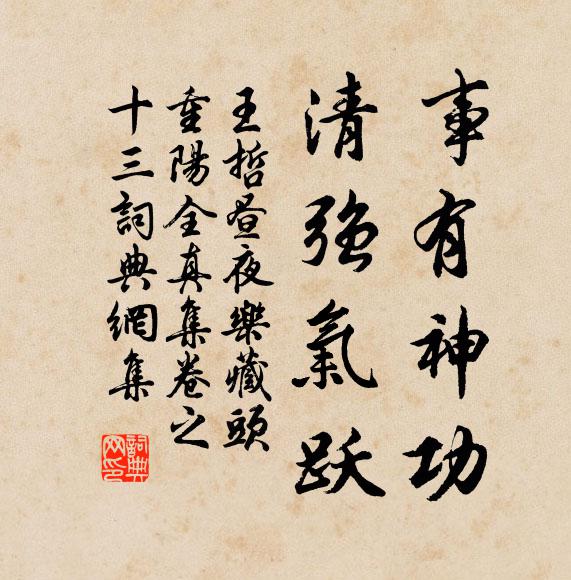 事有神功
清強氣跃
王哲昼夜樂藏頭
重陽全真集卷之
十三詞典網集
詞典网印